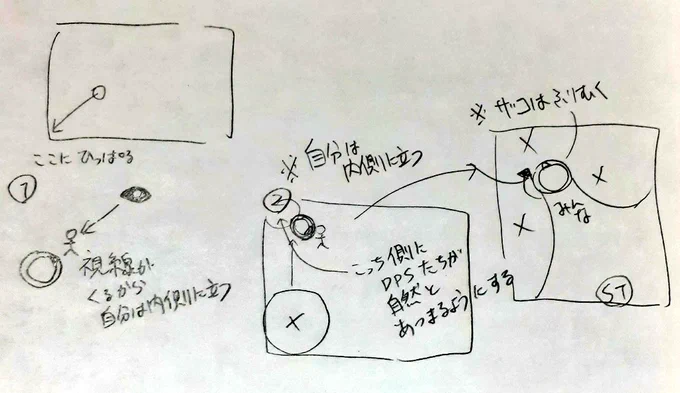 ここにひっぱる
①
視線が
くるから
自分は内側に立つ
※ 自分は
内側に立つ
②
こっち側に
DPSたちが
自然と
あつまるようにする
※ ザコはふりむく
みんな
ST